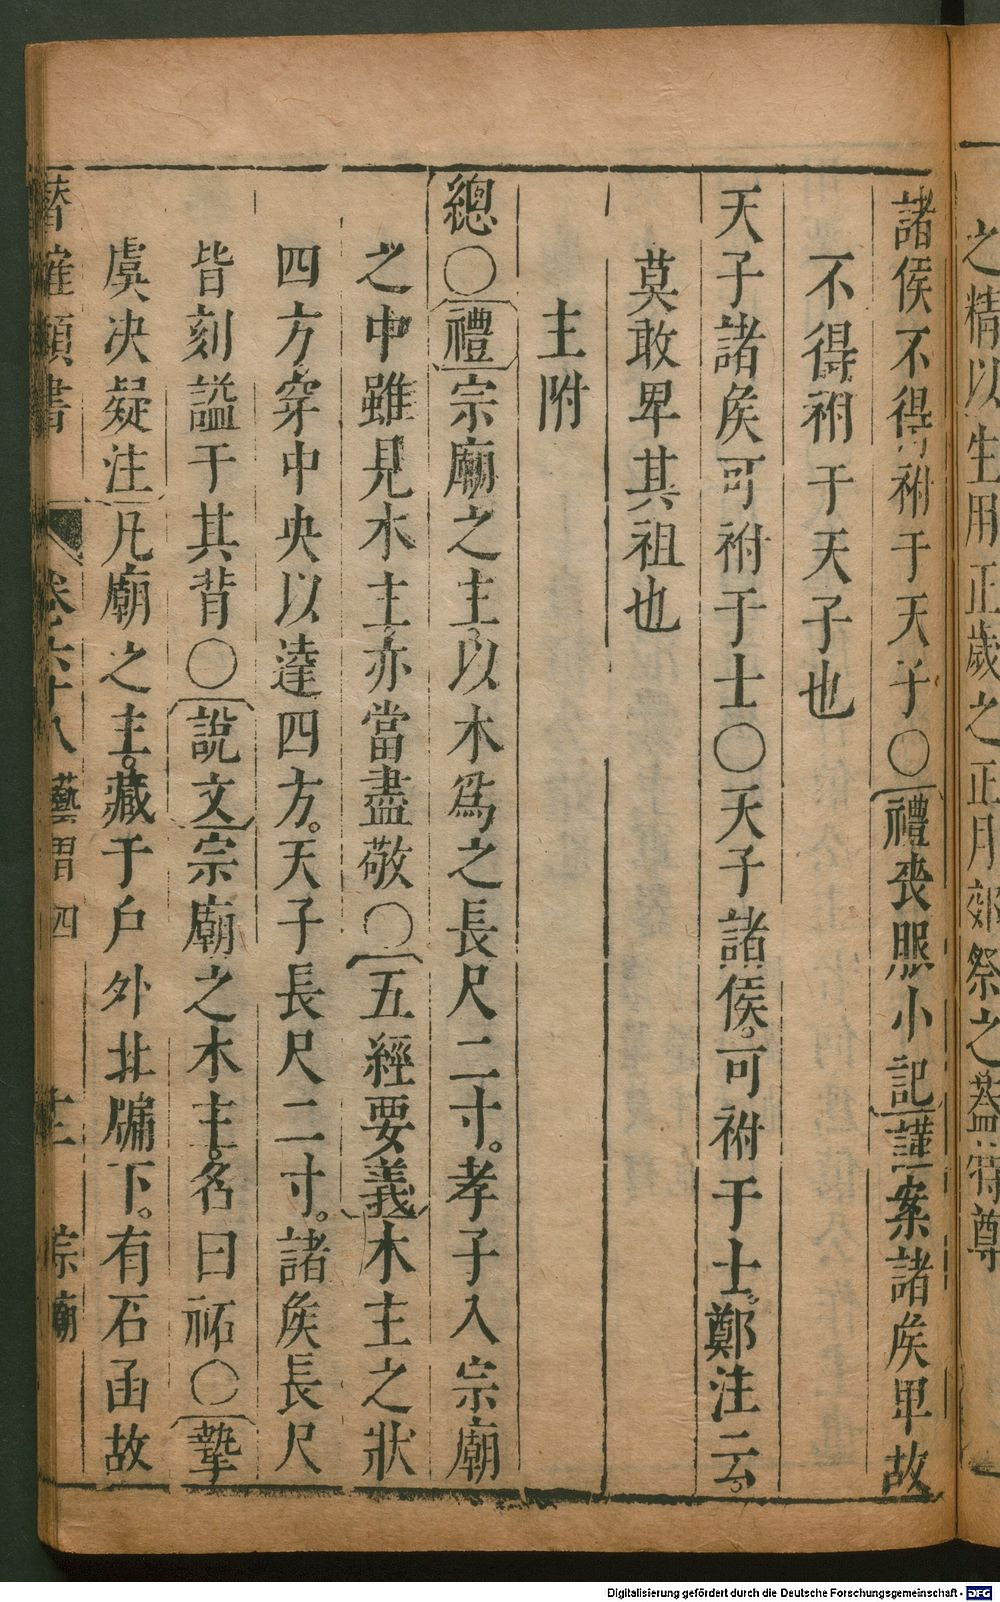 之精以生用正歲之正月郊祭之蓋特尊
諸侯不得祔于天子○禮喪服小記謹案諸侯卑故
不得祔于天子也
天子諸侯可祔于士○天子諸侯可祔于士鄭注云
莫敢卑其祖也
主附
總○禮宗廟之主以木爲之長尺二寸孝子入宗廟
之中雖見木主亦當盡敬○五經要義木主之狀
四方穿中央以達四方天子長尺二寸諸侯長尺
皆刻謚于其背○說文宗廟之木主名曰祏○摯
虞决疑注凡廟之主藏于戶外北牖下有石函故
潛確類書 卷六十八藝習四 十二 宗廟
Digitalisierung gefördert durch die Deutsche Forschungsgemeinschaft - DFG